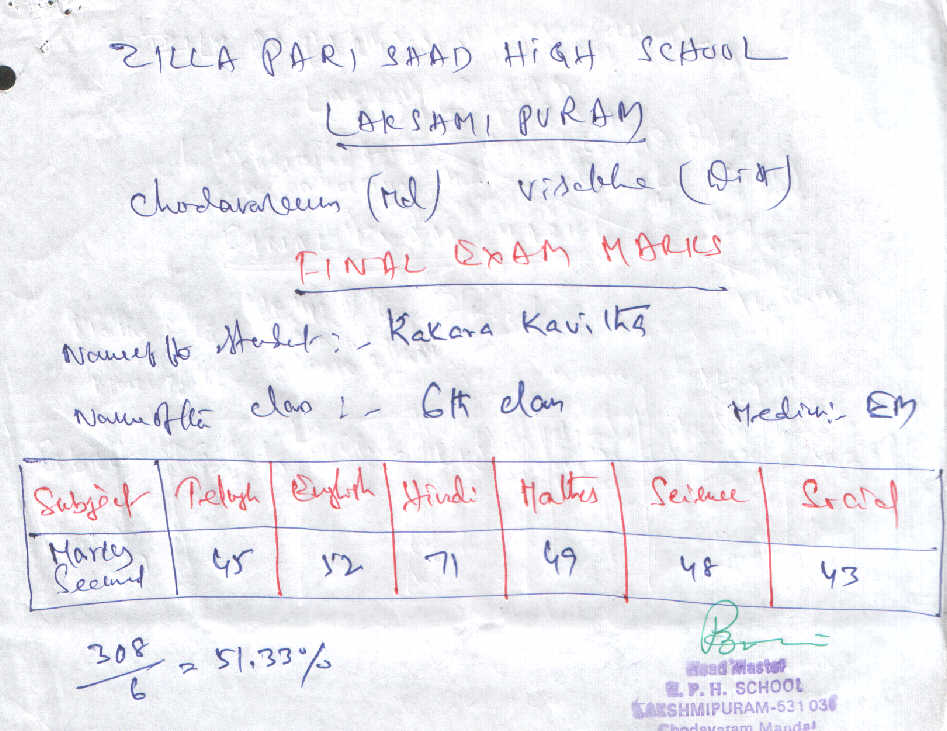 ZILLA PARI SAAD HIGH SCHOOL
LAKSAMI PURAM
Chodavaram (Md) Visakha (Dist)
FINAL EXAM MARKS
Name of the Student :- Kakara Kavitha
Name of the class :- 6th class Medium:- EM
Subject Telugh English Hindi Mathes Science Social
Marks 45 52 71 49 48 43
Secured
308/6 = 51.33%
Head Master
Z. P. H. SCHOOL
LAKSHMIPURAM-531 036
Chodavaram Mandal